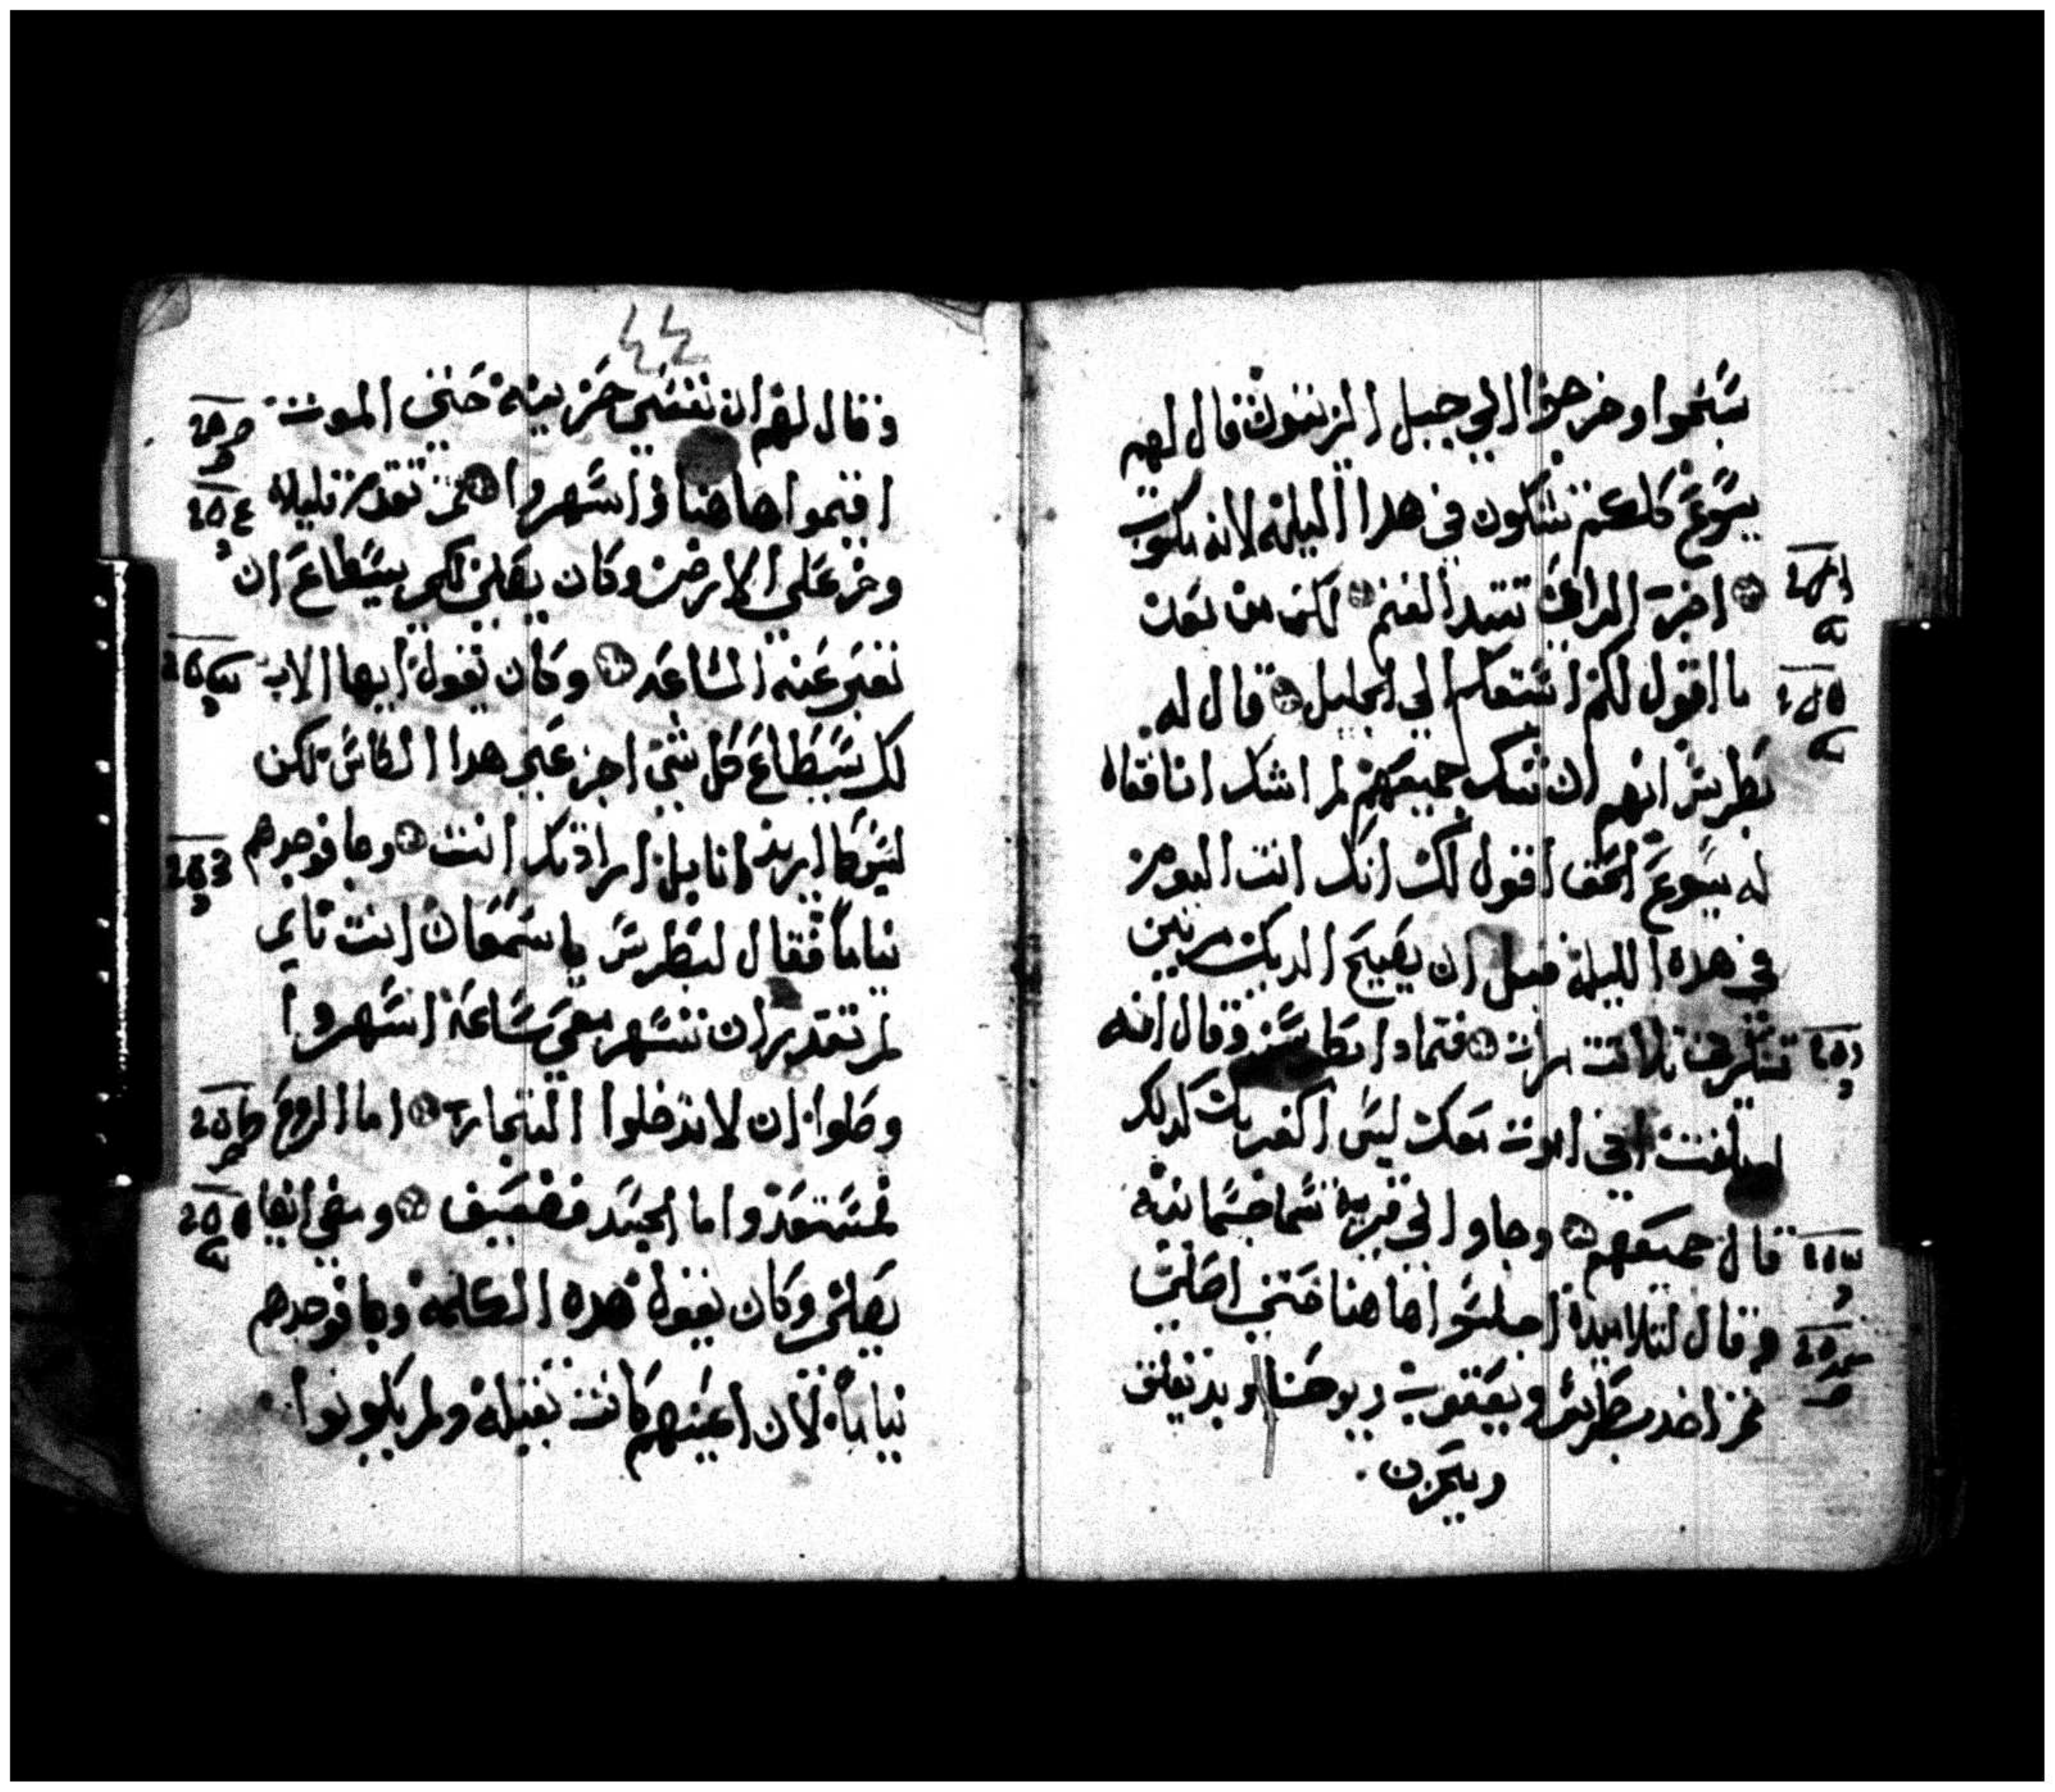 سبحوا وخرجوا الي جبل الزيتون قال لهم
يسوع كلكم تشكون في هدا الليلة لانه مكتوب
اضرب الراعي تتبدد الغنم لكن من بعد
ما اقول لكم اسبقكم الي الجليل قال له
بطرس انهم ان شك جميعهم لم اشك انا فقال
له يسوع الحق اقول لك انك انت اليوم
في هده الليلة قبل ان يصيح الديك مرتين
تنكرني ثلاثت مرات فتمادا بطرس وقال انه
اني اموت معك ليس اكفر بك كدلك
قال جميعهم وجاوا الي قرية تسما جسمانيه
وقال لتلاميده اجلسوا هاهنا حتي اصلي
ثم اخد بطرس ويعقوب ويوحنا وبد يقلق
ويحزن
٤٤
وقال لهم ان نفسي حزينة حتي الموت
اقيموا هاهنا واسهروا ثم تقدم قليلا
وخر علي الارض وكان يصلي لكي يسطاع ان
تعبر عنه الساعة وكان يقول ايها الاب
لك يسطاع كل شي اجز عني هدا الكاس لكن
ليس كما اريد انا بل ارادتك انت وجا فوجدهم
نياماً فقال لبطرس يا سمعان انت نايم
لم تقدر ان تسهر معي ساعة اسهروا
وصلوا ان لا تدخلوا التجارب اما الروح
فمستعد واما الجسد فضعيف ومضي ايضا
يصلي وكان يقول هده الكلمة وجا فوجدهم
نياماً لان اعينهم كانت ثقيلة ولم يكونوا